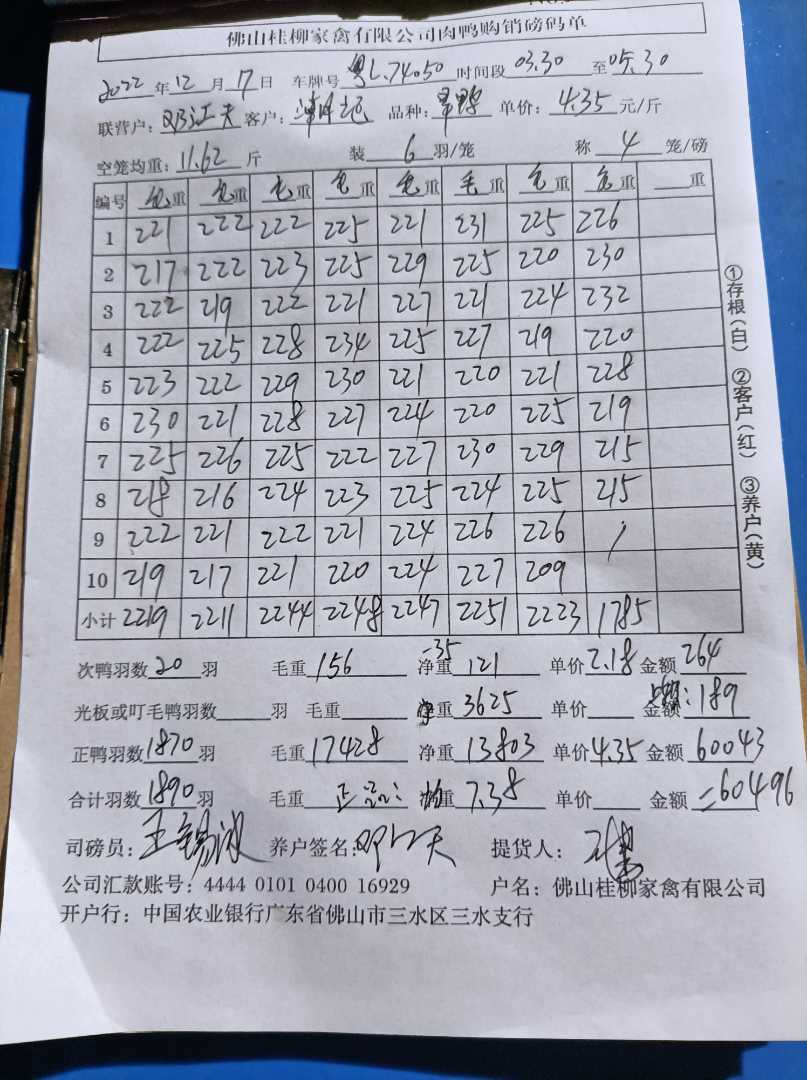 佛山桂柳家禽有限公司肉鸭购销磅码单
2022年12月7日 车牌号 粤L.74050 时间段 03.30 至 05.30
联营户: 邓江天 客户: 品种: 单价: 4.35 元/斤
空笼均重: 11.62 斤 装 6 羽/笼 称 4 笼/磅
编号 毛重 毛重 毛重 毛重 毛重 毛重 毛重 毛重 重
1 221 222 222 225 221 231 225 226
2 217 222 223 225 229 225 220 230
3 222 219 222 221 227 221 224 232
4 222 225 228 234 225 227 219 220
5 223 222 229 230 221 220 221 228
6 230 221 228 227 224 220 225 219
7 225 226 225 222 227 230 229 215
8 218 216 224 223 225 224 225 215
9 222 221 222 221 224 226 226 /
10 219 217 221 220 224 227 209
小计 2219 2211 2244 2248 2247 2251 2223 1785
①存根(白) ②客户(红) ③养户(黄)
-35
次鸭羽数 20 羽 毛重 156 净重 121 单价 2.18 金额 264
光板或叮毛鸭羽数 羽 毛重 净重 3625 单价 金额 : 189
正鸭羽数 1870 羽 毛重 17428 净重 13803 单价 4.35 金额 60043
合计羽数 1890 羽 毛重 重 7.38 单价 金额 =60496
司磅员: 王锡波 养户签名: 邓江天 提货人:
公司汇款账号: 4444 0101 0400 16929 户名: 佛山桂柳家禽有限公司
开户行: 中国农业银行广东省佛山市三水区三水支行